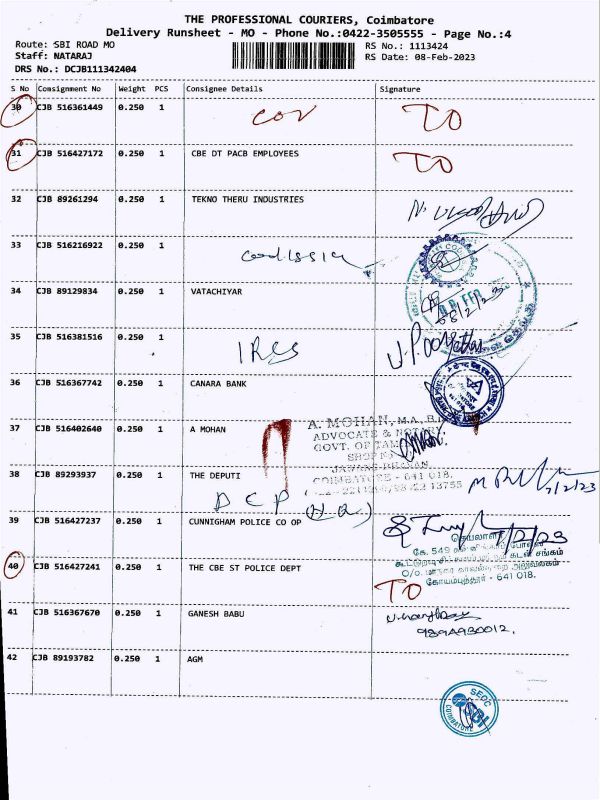 THE PROFESSIONAL COURIERS, Coimbatore
Delivery Runsheet - MO - Phone No.:0422-3505555 - Page No.:4
Route: SBI ROAD MO
RS No.: 1113424
Staff: NATARAJ
RS Date: 08-Feb-2023
DRS No.: DCJB111342404
S No Consignment No Weight PCS Consignee Details Signature
30 CJB 516361449 0.250 1 COV TO
31 CJB 516427172 0.250 1 CBE DT PACB EMPLOYEES TO
32 CJB 89261294 0.250 1 TEKNO THERU INDUSTRIES
33 CJB 516216922 0.250 1 codissia
34 CJB 89129834 0.250 1 VATACHIYAR 08/2/23
35 CJB 516381516 0.250 1
36 CJB 516367742 0.250 1 CANARA BANK
37 CJB 516402640 0.250 1 A MOHAN
A. MOHAN, M.A., B.L.
ADVOCATE & NOTARY,
GOVT. OF
COIMBATORE - 641 018.
38 CJB 89293937 0.250 1 THE DEPUTI
DCP
39 CJB 516427237 0.250 1 CUNNIGHAM POLICE CO OP
செயலாளர்
கே. 549
கோயம்புத்தூர் - 641 018.
40 CJB 516427241 0.250 1 THE CBE ST POLICE DEPT TO
41 CJB 516367670 0.250 1 GANESH BABU
42 CJB 89193782 0.250 1 AGM
SEOC
SBI
COIMBATORE